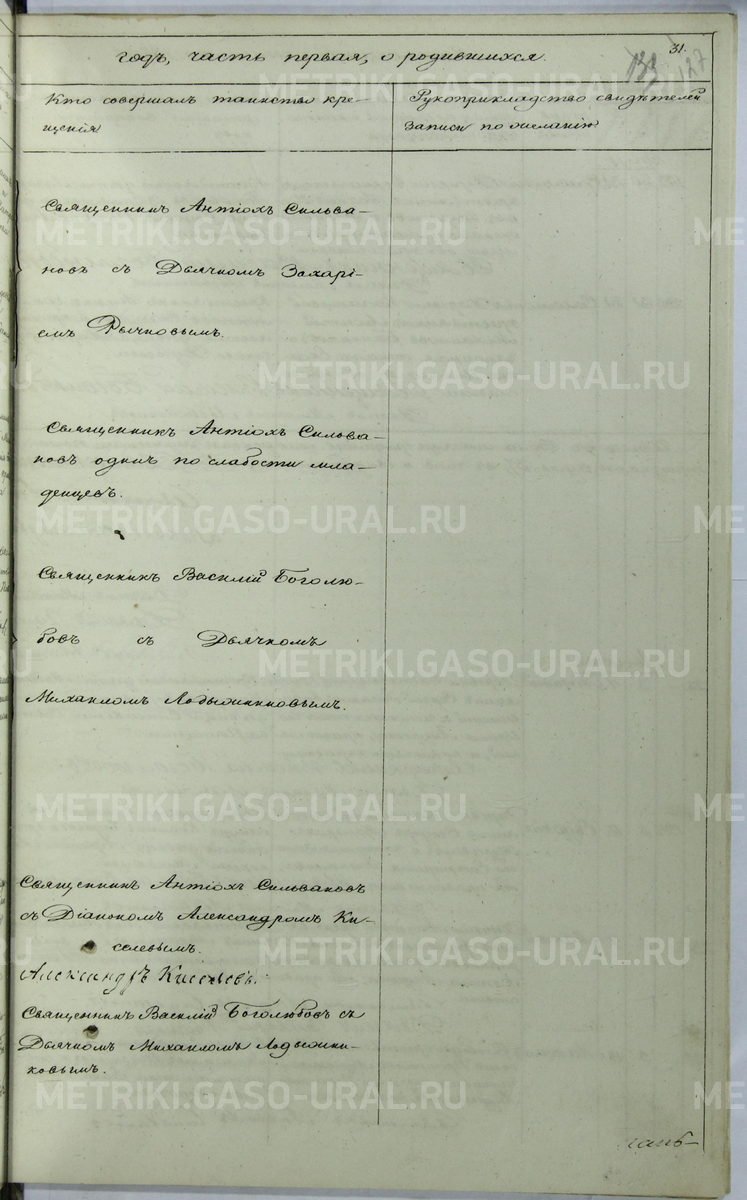 31.
годъ, часть первая, о родившихся.
127
Кто совершалъ таинство кре-
щенія
Рукоприкладство свидѣтелей
записи по желанію
Священникъ Антіохъ Сильва-
новъ съ Дьячкомъ Захарі-
емъ Рычковымъ.
Священникъ Антіохъ Сильва-
новъ одинъ по слабости мла-
денцевъ.
Священникъ Василій Боголю-
бовъ съ Дьячкомъ
Михаиломъ Ладыжниковымъ.
Священникъ Антіохъ Сильвановъ
съ Діакономъ Александромъ Ки-
селевымъ.
Александръ Киселевъ.
Священникъ Василій Боголюбовъ съ
Дьячкомъ Михаиломъ Ладыжни-
ковымъ.
METRIKI.GASO-URAL.RU